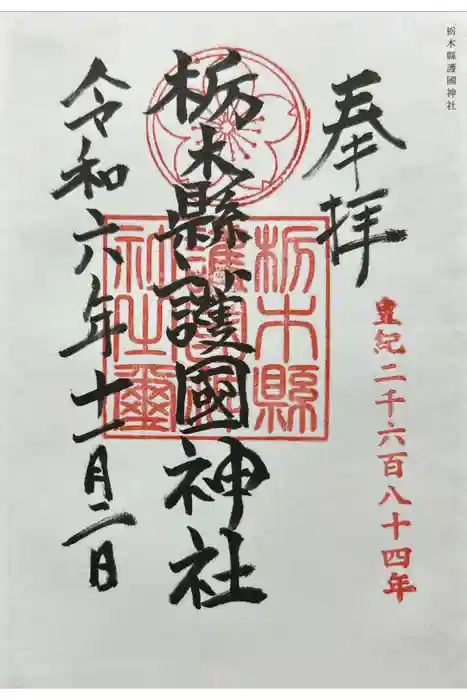 栃木縣護國神社
奉拝
皇紀二千六百八十四年
栃木縣護國神社
栃木縣護國神社璽
令和六年十一月二日